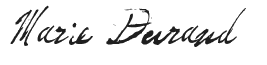 Marie Durand